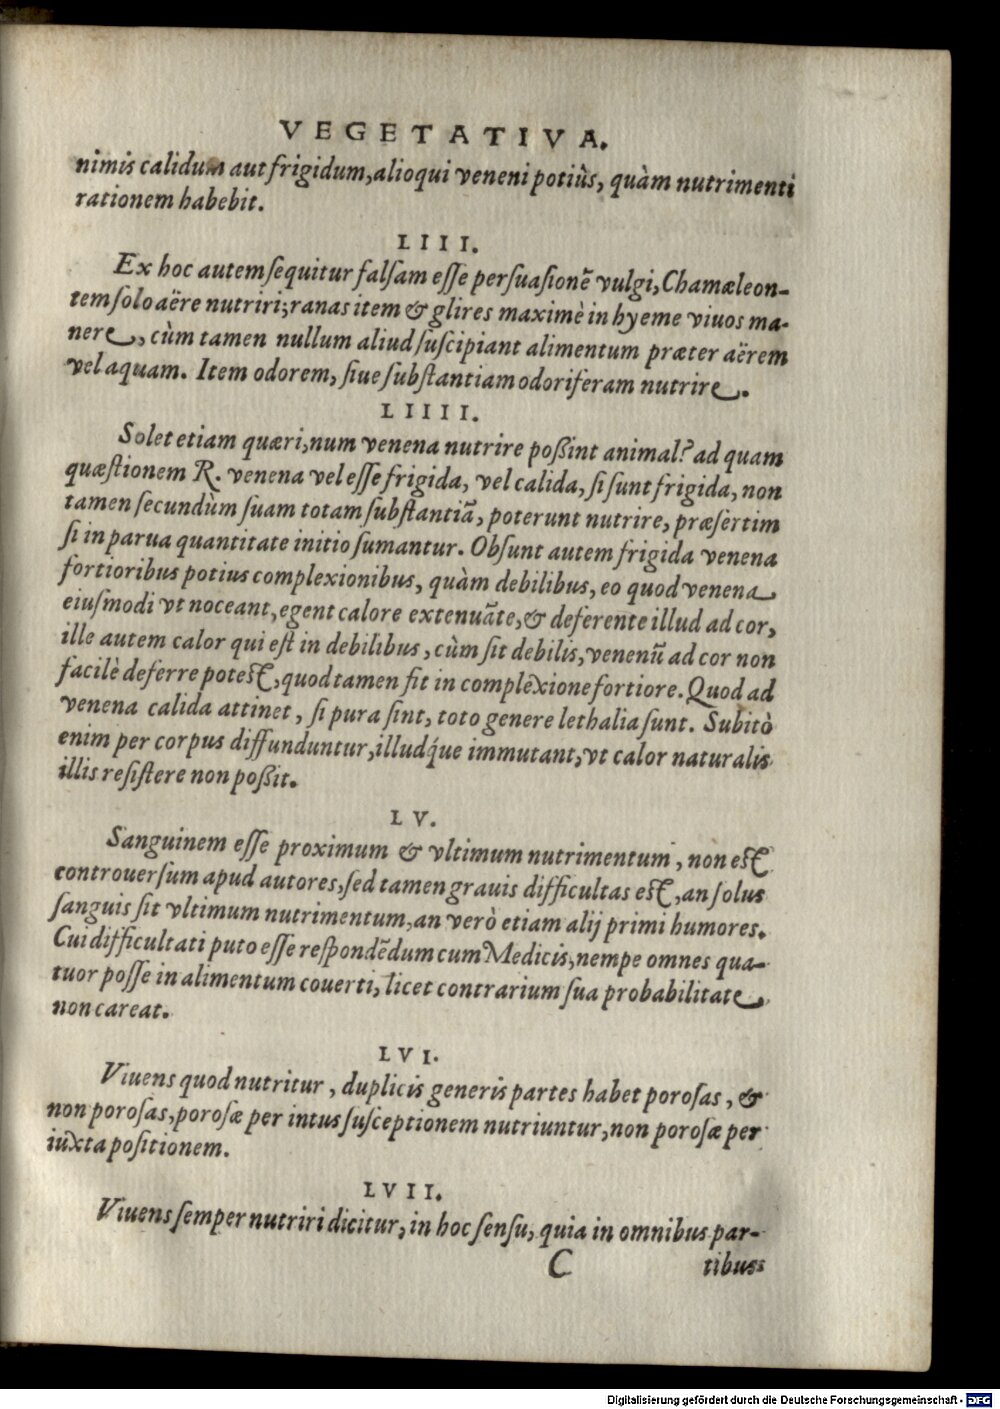 VEGETATIVA.
nimis calidum aut frigidum, alioqui veneni potiùs, quàm nutrimenti
rationem habebit.
LIII.
Ex hoc autem sequitur falsam esse persuasionē vulgi, Chamæleon-
tem solo aëre nutriri; ranas item & glires maximè in hyeme viuos ma-
nere, cùm tamen nullum aliud suscipiant alimentum præter aërem
vel aquam. Item odorem, siue substantiam odoriferam nutrire.
LIIII.
Solet etiam quæri, num venena nutrire poßint animal? ad quam
quæstionem R. venena vel esse frigida, vel calida, si sunt frigida, non
tamen secundùm suam totam substantiā, poterunt nutrire, præsertim
si in parua quantitate initio sumantur. Obsunt autem frigida venena
fortioribus potius complexionibus, quàm debilibus, eo quod venena
eiusmodi vt noceant, egent calore extenuāte, & deferente illud ad cor,
ille autem calor qui est in debilibus, cùm sit debilis, venenū ad cor non
facilè deferre potest, quod tamen fit in complexione fortiore. Quod ad
venena calida attinet, si pura sint, toto genere lethalia sunt. Subitò
enim per corpus diffunduntur, illudq́ue immutant, vt calor naturalis
illis resistere non poßit.
LV.
Sanguinem esse proximum & vltimum nutrimentum, non est
controuersum apud autores, sed tamen grauis difficultas est, an solus
sanguis sit vltimum nutrimentum, an verò etiam alij primi humores.
Cui difficultati puto esse respondēdum cum Medicis, nempe omnes qua-
tuor posse in alimentum couerti, licet contrarium sua probabilitate
non careat.
LVI.
Viuens quod nutritur, duplicis generis partes habet porosas, &
non porosas, porosæ per intus susceptionem nutriuntur, non porosæ per
iuxta positionem.
LVII.
Viuens semper nutriri dicitur, in hoc sensu, quia in omnibus par-
C tibus
Digitalisierung gefördert durch die Deutsche Forschungsgemeinschaft - DFG